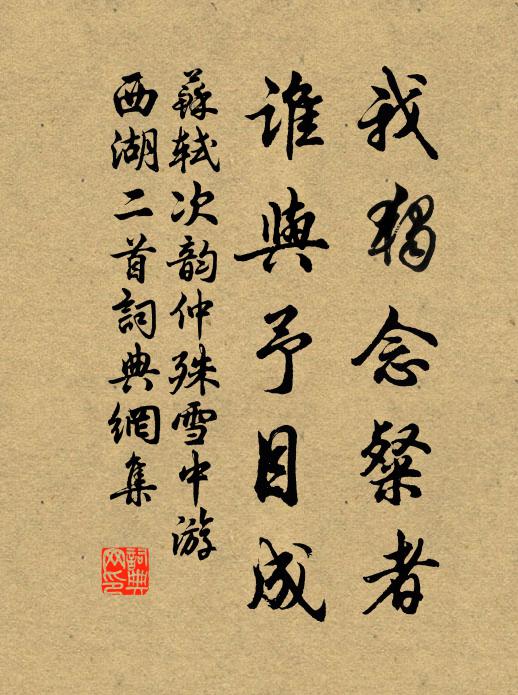 我獨念粲者
誰與予目成
蘇軾次韵仲殊雪中游
西湖二首詞典網集
詞典
网印